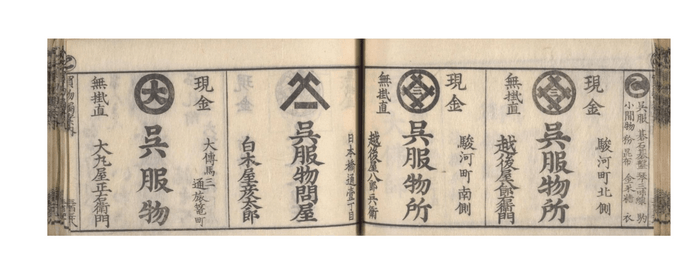 呉服
小間物
現金
駿河町北側
三
呉服物所
無掛直
越後屋八郎右衛門
現金
駿河町南側
三
呉服物所
無掛直
越後屋八郎兵衛
日本橋通壱丁目
呉服物問屋
白木屋彦太郎
現金
大傳馬三
通旅篭町
大
呉服物
無掛直
大丸屋正右衛門